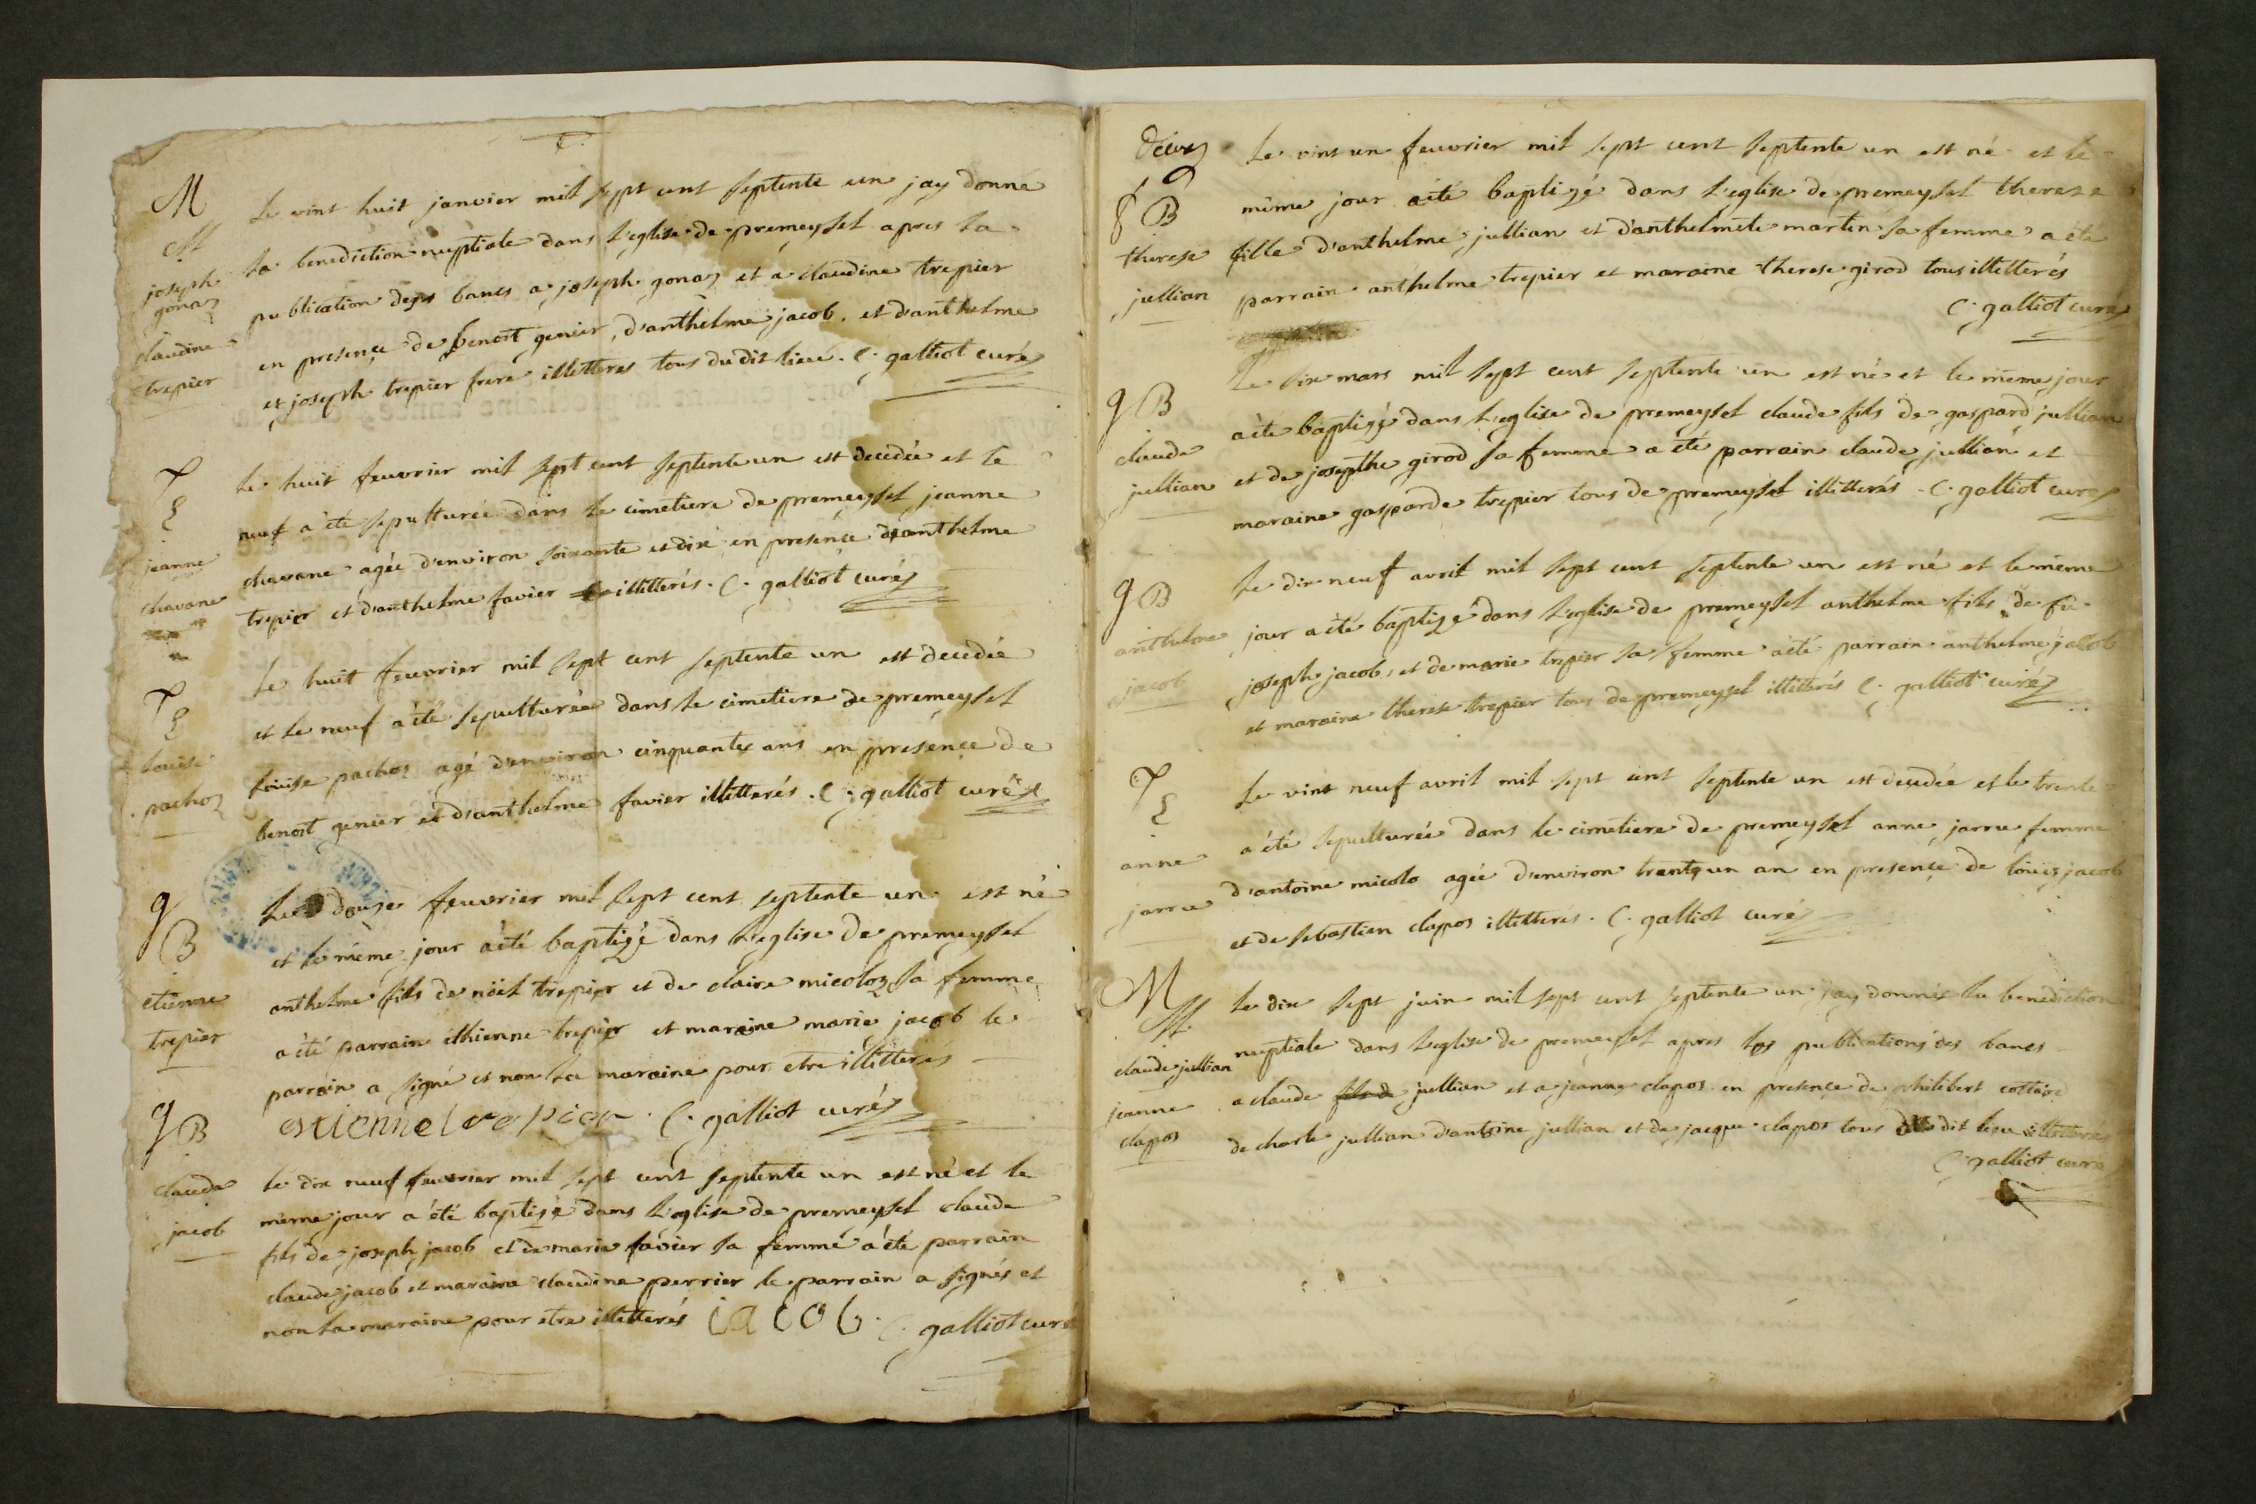 M
joseph
gonaz
claudine
trepier
Le vint huit janvier mil sept cent septente un jay donné
la benediction nuptiale dans l'eglise de premeysel apres la
publication des bancs a joseph gonaz et a claudine trepier
en presence de benoit genier, d'anthelme jacob, et d'anthelme
et joseph trepier frere illitteres tous du dit lieu. C. galliot curé
jeanne
chavane
Le huit feuvrier mil sept cent septente un est decedée et le
neuf a été sepulturee dans le cimetiere de premeysel jeanne
chavane agée d'environ soixante et dix en presence d'anthelme
trepier et d'anthelme favier illitterés. C. galliot curé
louise
pachoz
Le huit feuvrier mil sept cent septente un est decedée
et le neuf a été sepulturée dans le cimetiere de premeysel
louise pachoz agé d'environ cinquante ans en presence de
benoit genier et d'anthelme favier illitterés. C. galliot curé
g
B
etienne
trepier
Le douze feuvrier mil sept cent septente un est né
et le même jour a été baptizé dans l'eglise de premeysel
anthelme fils de noël trepier et de claire micoloz sa femme
a été parrain ethienne trepier et maraine marie jacob le
parrain a signé et non la maraine pour etre illitterés
C. galliot curé
g B
claude
jacob
Le dix neuf feuvrier mil sept cent septente un est né et le
même jour a été baptizé dans l'eglise de premeysel claude
fils de joseph jacob et de marie favier sa femme a été parrain
claude jacob et maraine claudine perrier le parrain a signés et
non la maraine pour etre illitterés iacob C. galliot curé
B
therese
jullian
Le vint un feuvrier mil sept cent septente un est né et le
même jour a été baptizé dans l'eglise de premeysel therese
fille d'anthelme jullian et d'anthelmete martin sa femme a été
parrain anthelme trepier et maraine therese girod tous illitterés
C. galliot curé
g B
claude
jullian
Le dix mars mil sept cent septente un est né et le même jour
a été baptizé dans l'eglise de premeysel claude fils de gaspard jullian
et de josepthe girod sa femme a été parrain claude jullian et
maraine gasparde trepier tous de premeysel illitterés. C. galliot curé
g B
anthelme
jacob
Le dix neuf avril mil sept cent septente un est né et le même
jour a été baptizé dans l'eglise de premeysel anthelme fils de fû
joseph jacob, et de marie trepier sa femme a été parrain anthelme jacob
et maraine therese trepier tous de premeysel illitterés C. galliot curé
anne
jarru
Le vint neuf avril mil sept cent septente un est decedée et le trente
a été sepulturée dans le cimetiere de premeysel anne jarru femme
d'antoine micolo agée d'environ trente un an en presence de loüis jacob
et de sebastien clapos illitterés. C. galliot curé
M
claude jullian
jeanne
clapos
Le dix sept juin mil sept cent septente un jay donnés la benediction
nuptiale dans l'eglise de premeysel apres les publications des bancs
a claude fils de jullian et a jeanne clapos en presence de philibert cottaire
de charle jullian d'antoine jullian et de jacque clapos tous du dit lieu illitterés
C. galliot curé